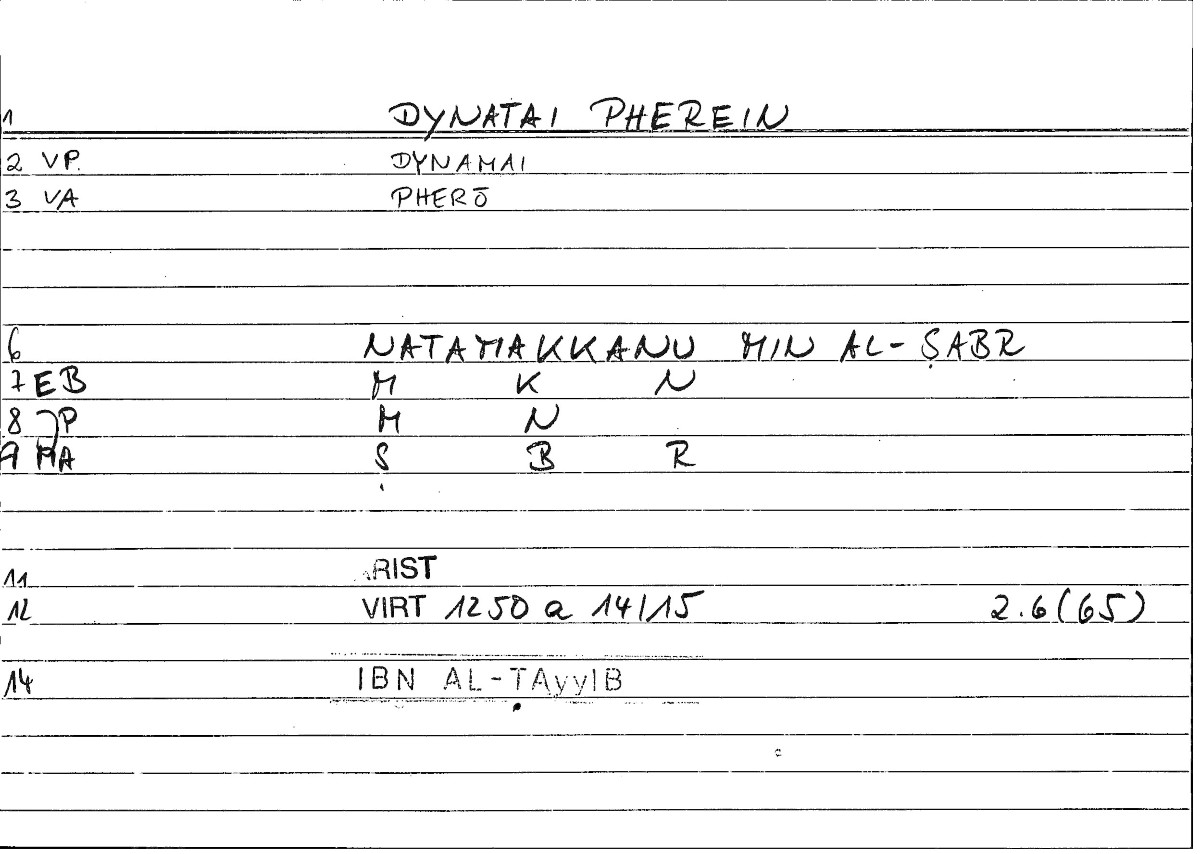 1 DYNATAI PHEREIN
2 VP. DYNAMAI
3 VA PHERŌ
6 NATAMAKKANU MIN AL-ṢABR
7 EB M K N
8 JP M N
9 MA Ṣ B R
11 ARIST
12 VIRT 1250 a 14/15 2.6(65)
14 IBN AL-ṬAyyIB